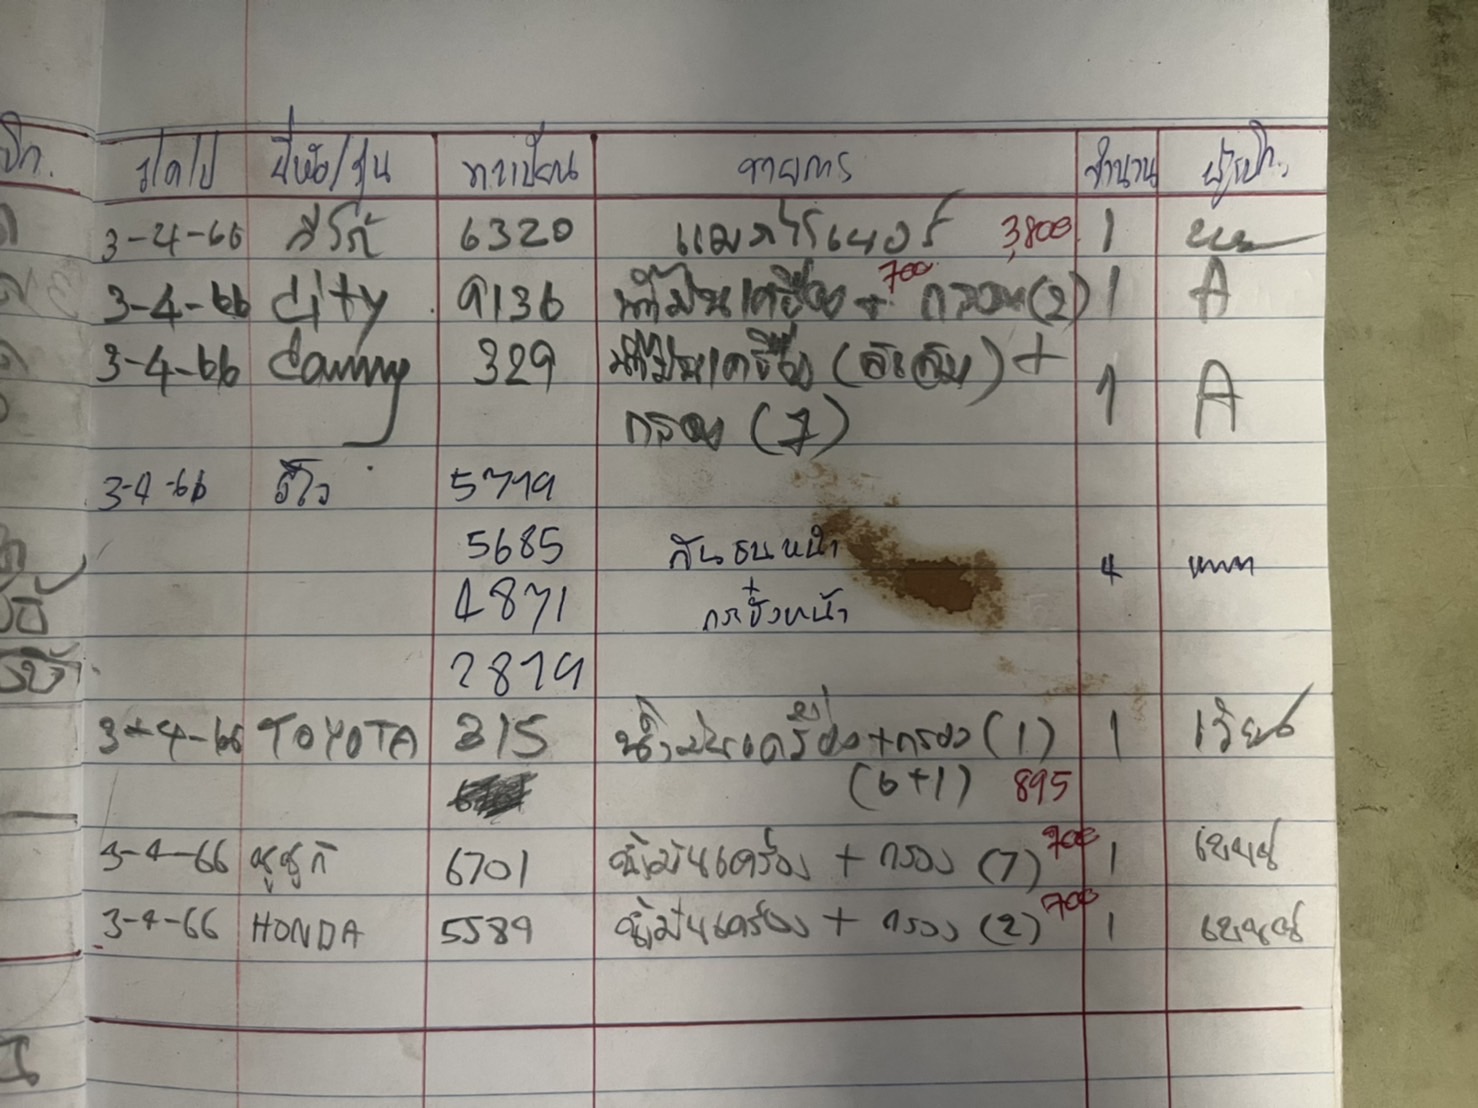 ว/ด/ป ยี่ห้อ/รุ่น ทะเบียน รายการ จำนวน ผู้เบิก
3-4-66 6320 แมคไรเนอร์ 3,800 1
3-4-66 City 9136 น้ำมันเครื่อง + กรอง (2) 700 1 A
3-4-66 Camry 329 น้ำมันเครื่อง (ลิเดีย) +
กรอง (7) 1 A
3-4-66 รีโว่ 5719
5685 กันชนหน้า
+ 4 เทพ
4871 กระจังหน้า
2879
3-4-66 TOYOTA 315 น้ำมันเครื่อง+กรอง (1) 1 เวียง
(6+1) 895
3-4-66 ซูซูกิ 6701 น้ำมันเครื่อง + กรอง (7) 700 1
3-4-66 HONDA 5589 น้ำมันเครื่อง + กรอง (2) 700 1